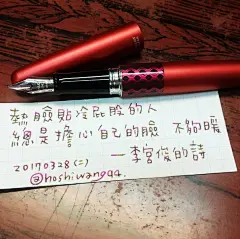 熱臉貼冷屁股的人
總是擔心自己的臉 不夠暖
—李宮俊的詩
20170328(二)
@hoshiwang94.